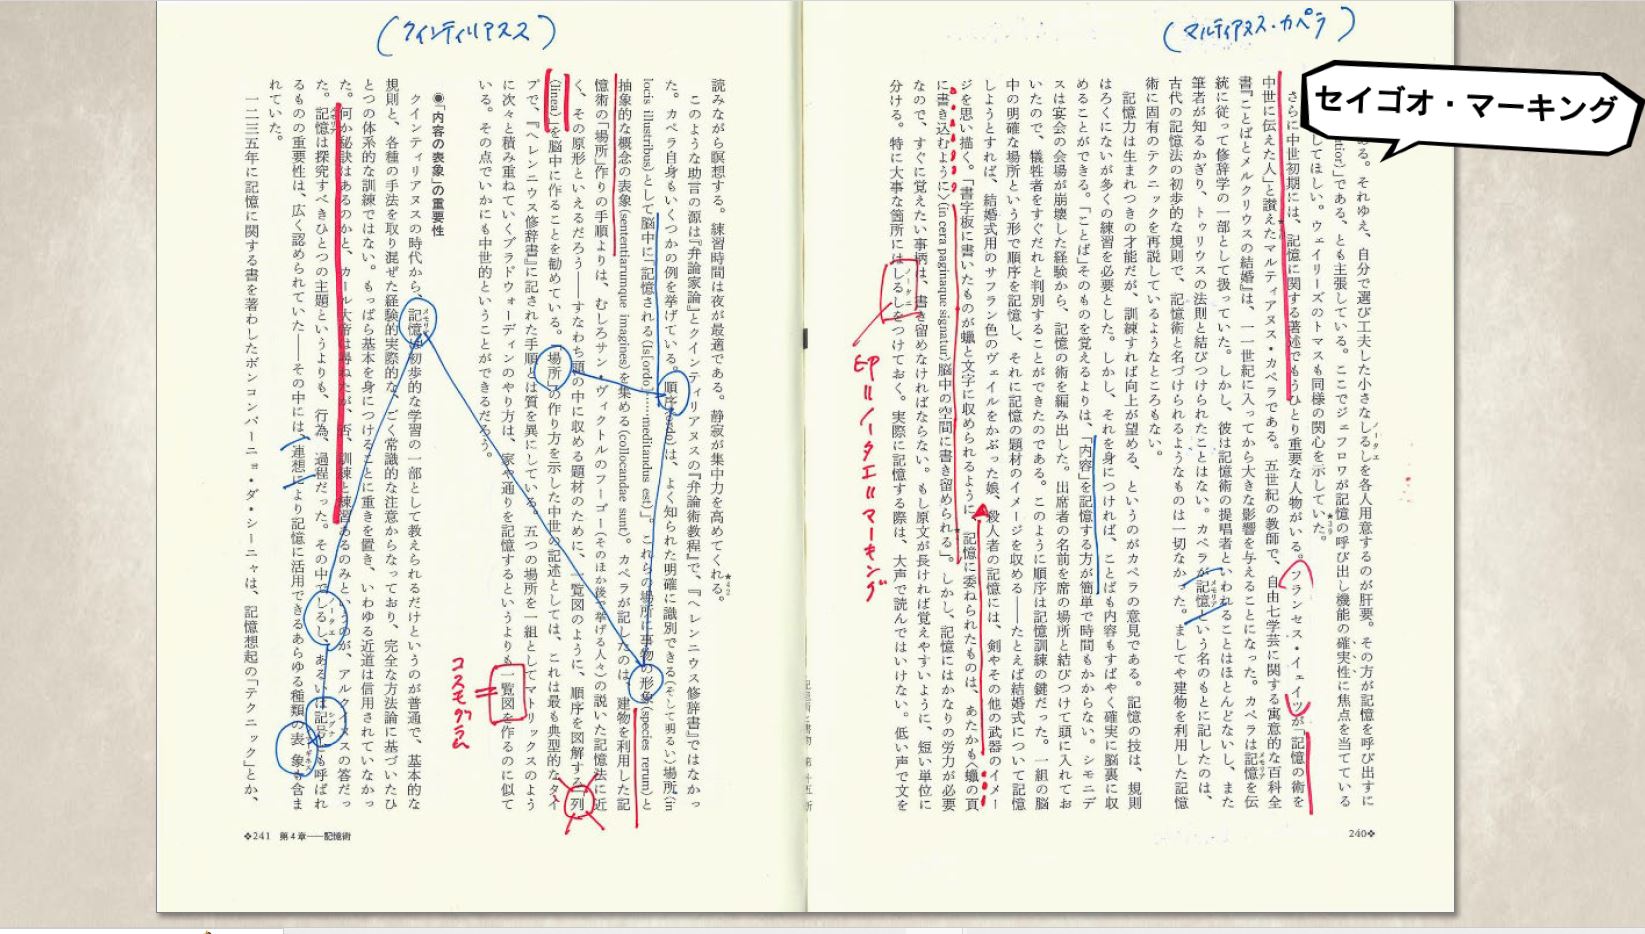 (マルティアヌス・カペラ)
セイゴオ・マーキング
ある。それゆえ、自分で選び工夫した小さなしるしを各人用意するのが肝要。その方が記憶を呼び出すに
である、とも主張している。ここでジェフロワが記憶の呼び出し機能の確実性に焦点を当てている
してほしい。ウェイリーズのトマスも同様の関心を示していた。
さらに中世初期には、記憶に関する著述でもうひとり重要な人物がいる。フランセス・イェイツが「記憶の術を
中世に伝えた人」と讃えたマルティアヌス・カペラである。五世紀の教師で、自由七学芸に関する寓意的な百科全
書『ことばとメルクリウスの結婚』は、一一世紀に入ってから大きな影響を与えることになった。カペラは記憶を伝
統に従って修辞学の一部として扱っていた。しかし、彼は記憶術の提唱者といわれることはほとんどないし、また
筆者が知るかぎり、トゥリウスの法則と結びつけられたことはない。カペラが記憶という名のもとに記したのは、
古代の記憶法の初歩的な規則で、記憶術と名づけられるようなものは一切なかった。ましてや建物を利用した記憶
術に固有のテクニックを再説しているようなところもない。
記憶力は生まれつきの才能だが、訓練すれば向上が望める、というのがカペラの意見である。記憶の技は、規則
はろくにないが多くの練習を必要とした。しかし、それを身につければ、ことばも内容もすばやく確実に脳裏に収
めることができる。「ことば」そのものを覚えるよりは、「内容」を記憶する方が簡単で時間もかからない。シモニデ
スは宴会の会場が崩壊した経験から、記憶の術を編み出した。出席者の名前を席の場所と結びつけて頭に入れてお
いたので、犠牲者をすぐだれと判別することができたのである。このように順序は記憶訓練の鍵だった。一組の脳
中の明確な場所という形で順序を記憶し、それに記憶の題材のイメージを収める——たとえば結婚式について記憶
しようとすれば、結婚式用のサフラン色のヴェイルをかぶった娘、殺人者の記憶には、剣やその他の武器のイメー
ジを思い描く。「書字板に書いたものが蠟と文字に収められるように、記憶に委ねられたものは、あたかも〈蠟の頁
に書き込むように〉(in cera paginaque signatur)脳中の空間に書き留められる」。しかし、記憶にはかなりの労力が必要
なので、すぐに覚えたい事柄は、書き留めなければならない。もし原文が長ければ覚えやすいように、短い単位に
分ける。特に大事な箇所にはしるしをつけておく。実際に記憶する際は、大声で読んではいけない。低い声で文を
ノータエ
EP=ノータエ=マーキング
240❖
(クインティリアヌス)
読みながら瞑想する。練習時間は夜が最適である。静寂が集中力を高めてくれる。
このような助言の源は『弁論家論』とクインティリアヌスの『弁論術教程』で、『ヘレンニウス修辞書』ではなかっ
た。カペラ自身もいくつかの例を挙げている。順序(ordo)は、よく知られた明確に識別できる(そして明るい)場所(in
locis illustribus)として脳中に「記憶される(Is[ordo]……meditandus est)」。これらの場所に事物の形象(species rerum)と
抽象的な概念の表象(sententiarumque imagines)を集める(collocandae sunt)。カペラが記したのは、建物を利用した記
憶術の「場所」作りの手順よりは、むしろサン・ヴィクトルのフーゴー(そのほか後で挙げる人々)の説いた記憶法に近
く、その原形といえるだろう——すなわち頭の中に収める題材のために、一覧図のように、順序を図解する「列
(linea)」を脳中に作ることを勧めている。「場所」の作り方を示した中世の記述としては、これは最も典型的なタイ
プで、『ヘレンニウス修辞書』に記された手順とは質を異にしている。五つの場所を一組としてマトリックスのよう
に次々と積み重ねていくブラドウォーディンのやり方は、家や通りを記憶するというよりも一覧図を作るのに似て
いる。その点でいかにも中世的ということができるだろう。
コスモグラム
◉「内容の表象」の重要性
クインティリアヌスの時代から、記憶は初歩的な学習の一部として教えられるだけというのが普通で、基本的な
規則と、各種の手法を取り混ぜた経験的実際的な、ごく常識的な注意からなっており、完全な方法論に基づいたひ
とつの体系的な訓練ではない。もっぱら基本を身につけることに重きを置き、いわゆる近道は信用されていなかっ
た。何か秘訣はあるのかと、カール大帝は尋ねたが、否、訓練と練習あるのみというのが、アルクイヌスの答だっ
た。記憶は探究すべきひとつの主題というよりも、行為、過程だった。その中でしるし、あるいは記号とも呼ばれ
るものの重要性は、広く認められていた——その中には、連想により記憶に活用できるあらゆる種類の表象も含ま
れていた。
一二三五年に記憶に関する書を著わしたボンコンパーニョ・ダ・シーニャは、記憶想起の「テクニック」とか、
❖241 第4章——記憶術